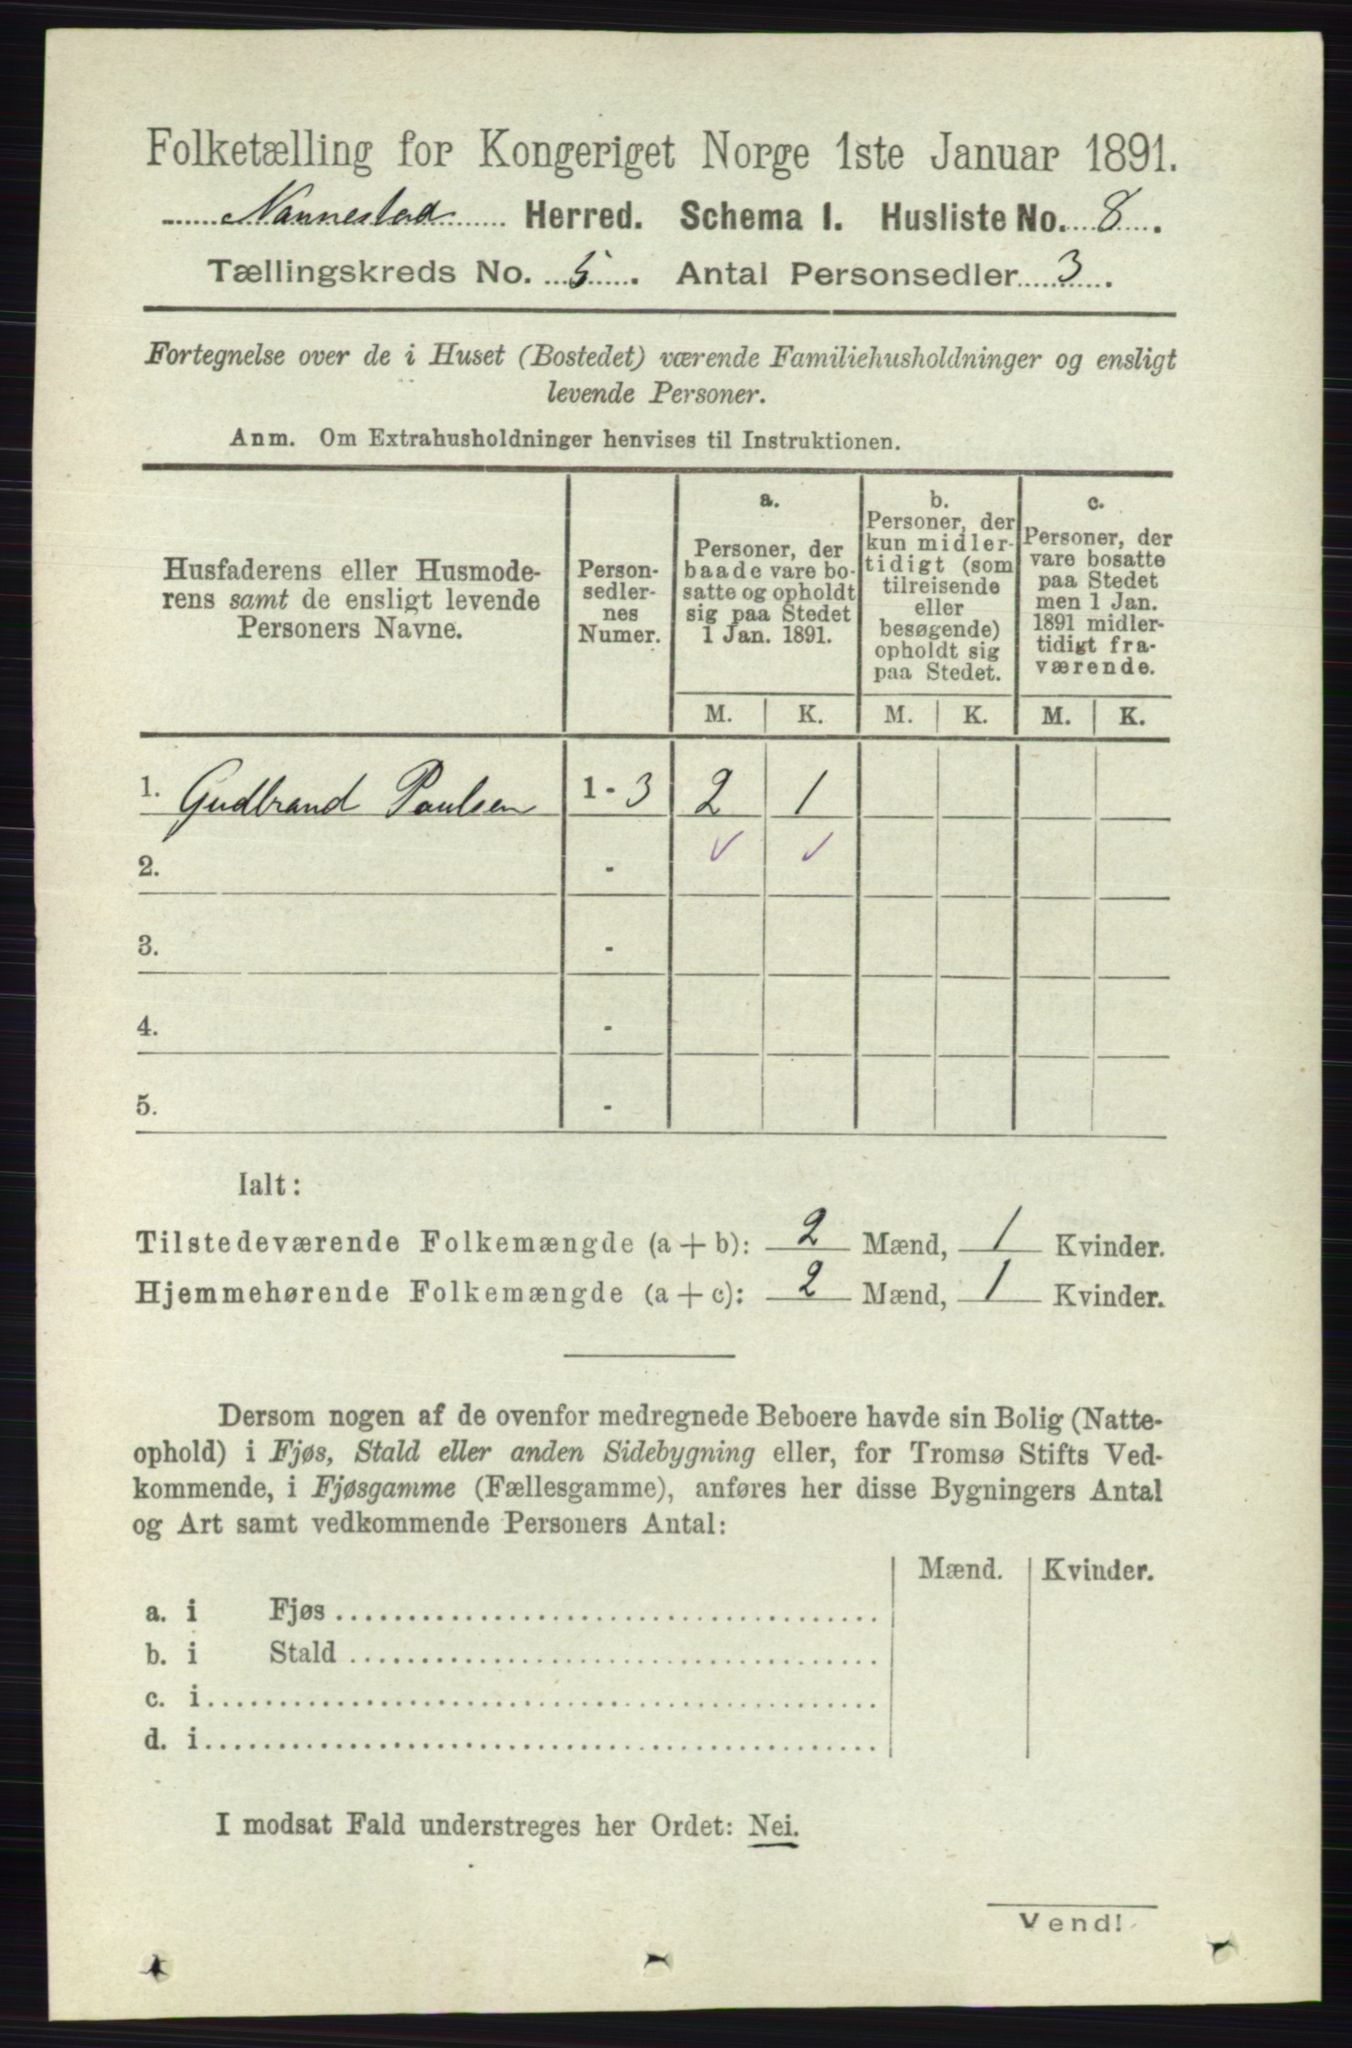 Folketælling for Kongeriget Norge 1ste Januar 1891.
Nannestad Herred. Schema I. Husliste No. 8.
Tællingskreds No. 5. Antal Personsedler 3.
Fortegnelse over de i Huset (Bostedet) værende Familiehusholdninger og ensligt
levende Personer.
Anm. Om Extrahusholdninger henvises til Instruktionen.
Husfaderens eller Husmode-
rens samt de ensligt levende
Personers Navne.
Person-
sedler-
nes
Numer.
a.
Personer, der
baade vare bo-
satte og opholdt
sig paa Stedet
1 Jan. 1891.
b.
Personer, der
kun midler-
tidigt (som
tilreisende
eller
besøgende)
opholdt sig
paa Stedet.
c.
Personer, der
vare bosatte
paa Stedet
men 1 Jan.
1891 midler-
tidigt fra-
værende.
M. K. M. K. M. K.
1. Gudbrand Paulsen 1 - 3 2 1
2. - ✓ ✓
3. -
4. -
5. -
Ialt:
Tilstedeværende Folkemængde (a + b): 2 Mænd, 1 Kvinder.
Hjemmehørende Folkemængde (a + c): 2 Mænd, 1 Kvinder.
Dersom nogen af de ovenfor medregnede Beboere havde sin Bolig (Natte-
ophold) i Fjøs, Stald eller anden Sidebygning eller, for Tromsø Stifts Ved-
kommende, i Fjøsgamme (Fællesgamme), anføres her disse Bygningers Antal
og Art samt vedkommende Personers Antal:
Mænd. Kvinder.
a. i Fjøs
b. i Stald
c. i
d. i
I modsat Fald understreges her Ordet: Nei.
Vend!